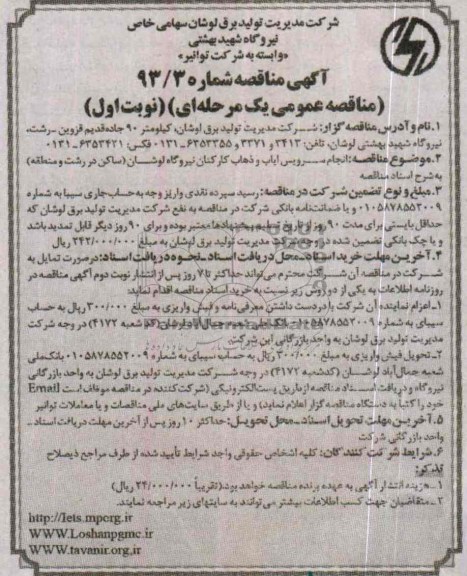 شرکت مدیریت تولید برق لوشان سهامی خاص
نیروگاه شهید بهشتی
«وابسته به شرکت توانیر»
آگهی مناقصه شماره ۹۳/۳
(مناقصه عمومی یک مرحله‌ای) (نوبت اول)
۱ـ نام و آدرس مناقصه گزار: شرکت مدیریت تولید برق لوشان، کیلومتر ۹۰ جاده قدیم قزوین ـ رشت،
نیروگاه شهید بهشتی لوشان، تلفن: ۳۴۱۲ و ۳۳۷۱ و ۶۳۵۳۳۵۵ ـ ۰۱۳۱ فکس: ۶۳۵۳۴۲۱ ـ ۰۱۳۱
۲ـ موضوع مناقصه: انجام سرویس ایاب و ذهاب کارکنان نیروگاه لوشان (ساکن در رشت و منطقه)
به شرح اسناد مناقصه
۳ـ مبلغ و نوع تضمین شرکت در مناقصه: رسید سپرده نقدی واریز وجه به حساب جاری سیبا به شماره
۰۱۰۵۸۷۸۵۵۲۰۰۹ و یا ضمانتنامه بانکی شرکت در مناقصه به نفع شرکت مدیریت تولید برق لوشان که
حداقل بایستی برای مدت ۹۰ روز از تاریخ تسلیم پیشنهادها معتبر بوده و برای ۹۰ روز دیگر قابل تمدید باشد
و یا چک بانکی تضمین شده در وجه شرکت مدیریت تولید برق لوشان به مبلغ ۲۴۲/۰۰۰/۰۰۰ ریال
۴ـ آخرین مهلت خرید اسناد ـ محل دریافت اسناد ـ نحوه دریافت اسناد: در صورت تمایل به
شرکت در مناقصه آن شرکت محترم می‌تواند حداکثر تا ۷ روز پس از انتشار نوبت دوم آگهی مناقصه در
روزنامه اطلاعات به یکی از دو روش زیر نسبت به خرید اسناد مناقصه اقدام نماید:
۱ـ اعزام نماینده آن شرکت با در دست داشتن معرفی‌نامه و فیش واریزی به مبلغ ۳۰۰/۰۰۰ ریال به حساب
سیبای به شماره ۰۱۰۵۸۷۸۵۵۲۰۰۹ بانک ملی شعبه جمال‌آباد لوشان (کد شعبه ۴۱۷۲) در وجه شرکت
مدیریت تولید برق لوشان به واحد بازرگانی این شرکت.
۲ـ تحویل فیش واریزی به مبلغ ۳۰۰/۰۰۰ ریال به حساب سیبای به شماره ۰۱۰۵۸۷۸۵۵۲۰۰۹ بانک ملی
شعبه جمال‌آباد لوشان (کد شعبه ۴۱۷۲) در وجه شرکت مدیریت تولید برق لوشان به واحد بازرگانی
نیروگاه و دریافت اسناد مناقصه از طریق پست الکترونیکی (شرکت‌کننده در مناقصه موظف است Email
خود را کتباً به دستگاه مناقصه گزار اعلام نماید) و یا از طریق سایت‌های ملی مناقصات و یا معاملات توانیر
۵ـ آخرین مهلت تحویل اسناد ـ محل تحویل: حداکثر ۱۰ روز پس از آخرین مهلت دریافت اسناد ـ
واحد بازرگانی شرکت
۶ـ شرایط شرکت کنندگان: کلیه اشخاص حقوقی واجد شرایط تأیید شده از طرف مراجع ذیصلاح
تذکر:
۱ـ هزینه انتشار آگهی به عهده برنده مناقصه خواهد بود. (تقریباً ۲۴/۰۰۰/۰۰۰ ریال)
۲ـ متقاضیان جهت کسب اطلاعات بیشتر می‌توانند به سایتهای زیر مراجعه نمایند.
http://Iets.mporg.ir
WWW.Loshanpgmc.ir
WWW.tavanir.org.ir